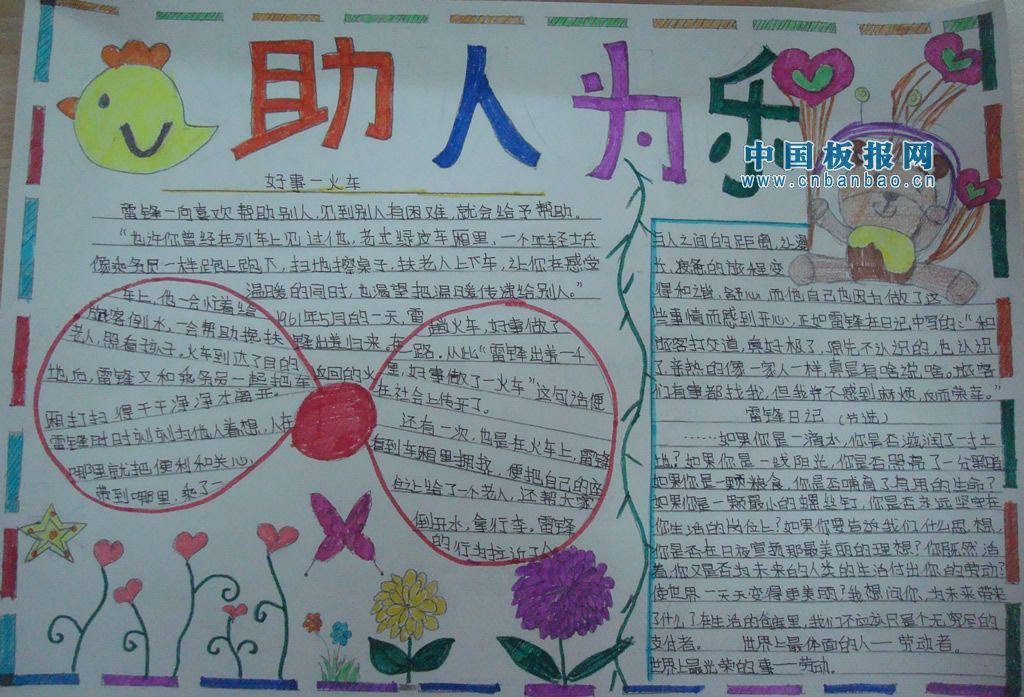 助人为乐
中国板报网
www.cnbanbao.cn
好事一火车
雷锋一向喜欢帮助别人,见到别人有困难,就会给予帮助。
“也许你曾经在列车上见过他,老式绿皮车厢里,一个年轻士兵
像乘务员一样跑上跑下,扫地擦桌子,扶老人上下车,让你在感受
温暖的同时,也渴望把温暖传递给别人。”
1961年5月的一天,雷
锋出差归来,在
返回的火
车上,他一会忙着给
旅客倒水,一会帮助搀扶
老人,照看孩子。火车到达了目的
地后,雷锋又和乘务员一起把车
厢打扫得干干净净才离开。
雷锋时时刻刻为他人着想,人在
哪里就把便利和关心
带到哪里,乘了一
趟火车,好事做了
一路。从此“雷锋出差一千
里,好事做了一火车”这句话便
在社会上传开了。
还有一次,也是在火车上,雷锋
看到车厢里拥挤,便把自己的座
位让给了一个老人,还帮大家
倒开水,拿行李,雷锋
的行为拉近了人
与人之间的距离,让漫
长、疲惫的旅程变
得和谐、舒心,而他自己也因为做了这
些事情而感到开心,正如雷锋在日记中写的:“和
旅客打交道,真好极了,原先不认识的,也认识
了,亲热的像一家人一样,真是有啥说啥。旅客
们有事都找我,但我并不感到麻烦,反而荣幸。”
雷锋日记(节选)
……如果你是一滴水,你是否滋润了一寸土
地?如果你是一线阳光,你是否照亮了一分黑暗
如果你是一颗粮食,你是否哺育了有用的生命?
如果你是一颗最小的螺丝钉,你是否永远坚守在
你生活的岗位上?如果你要告诉我们什么思想,
你是否在日夜宣扬那最美丽的理想?你既然活
着,你又是否为未来的人类的生活付出你的劳动?
使世界一天天变得更美丽?我想问你,为未来带来
了什么?在生活的仓库里,我们不应该只是个无穷尽的
支付者。 世界上最体面的人——劳动者。
世界上最光荣的事——劳动。